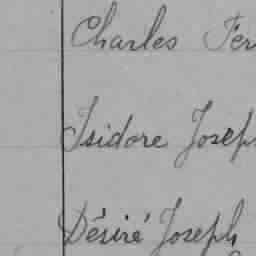 Charles Fer
Isidore Joseph
Désiré Joseph